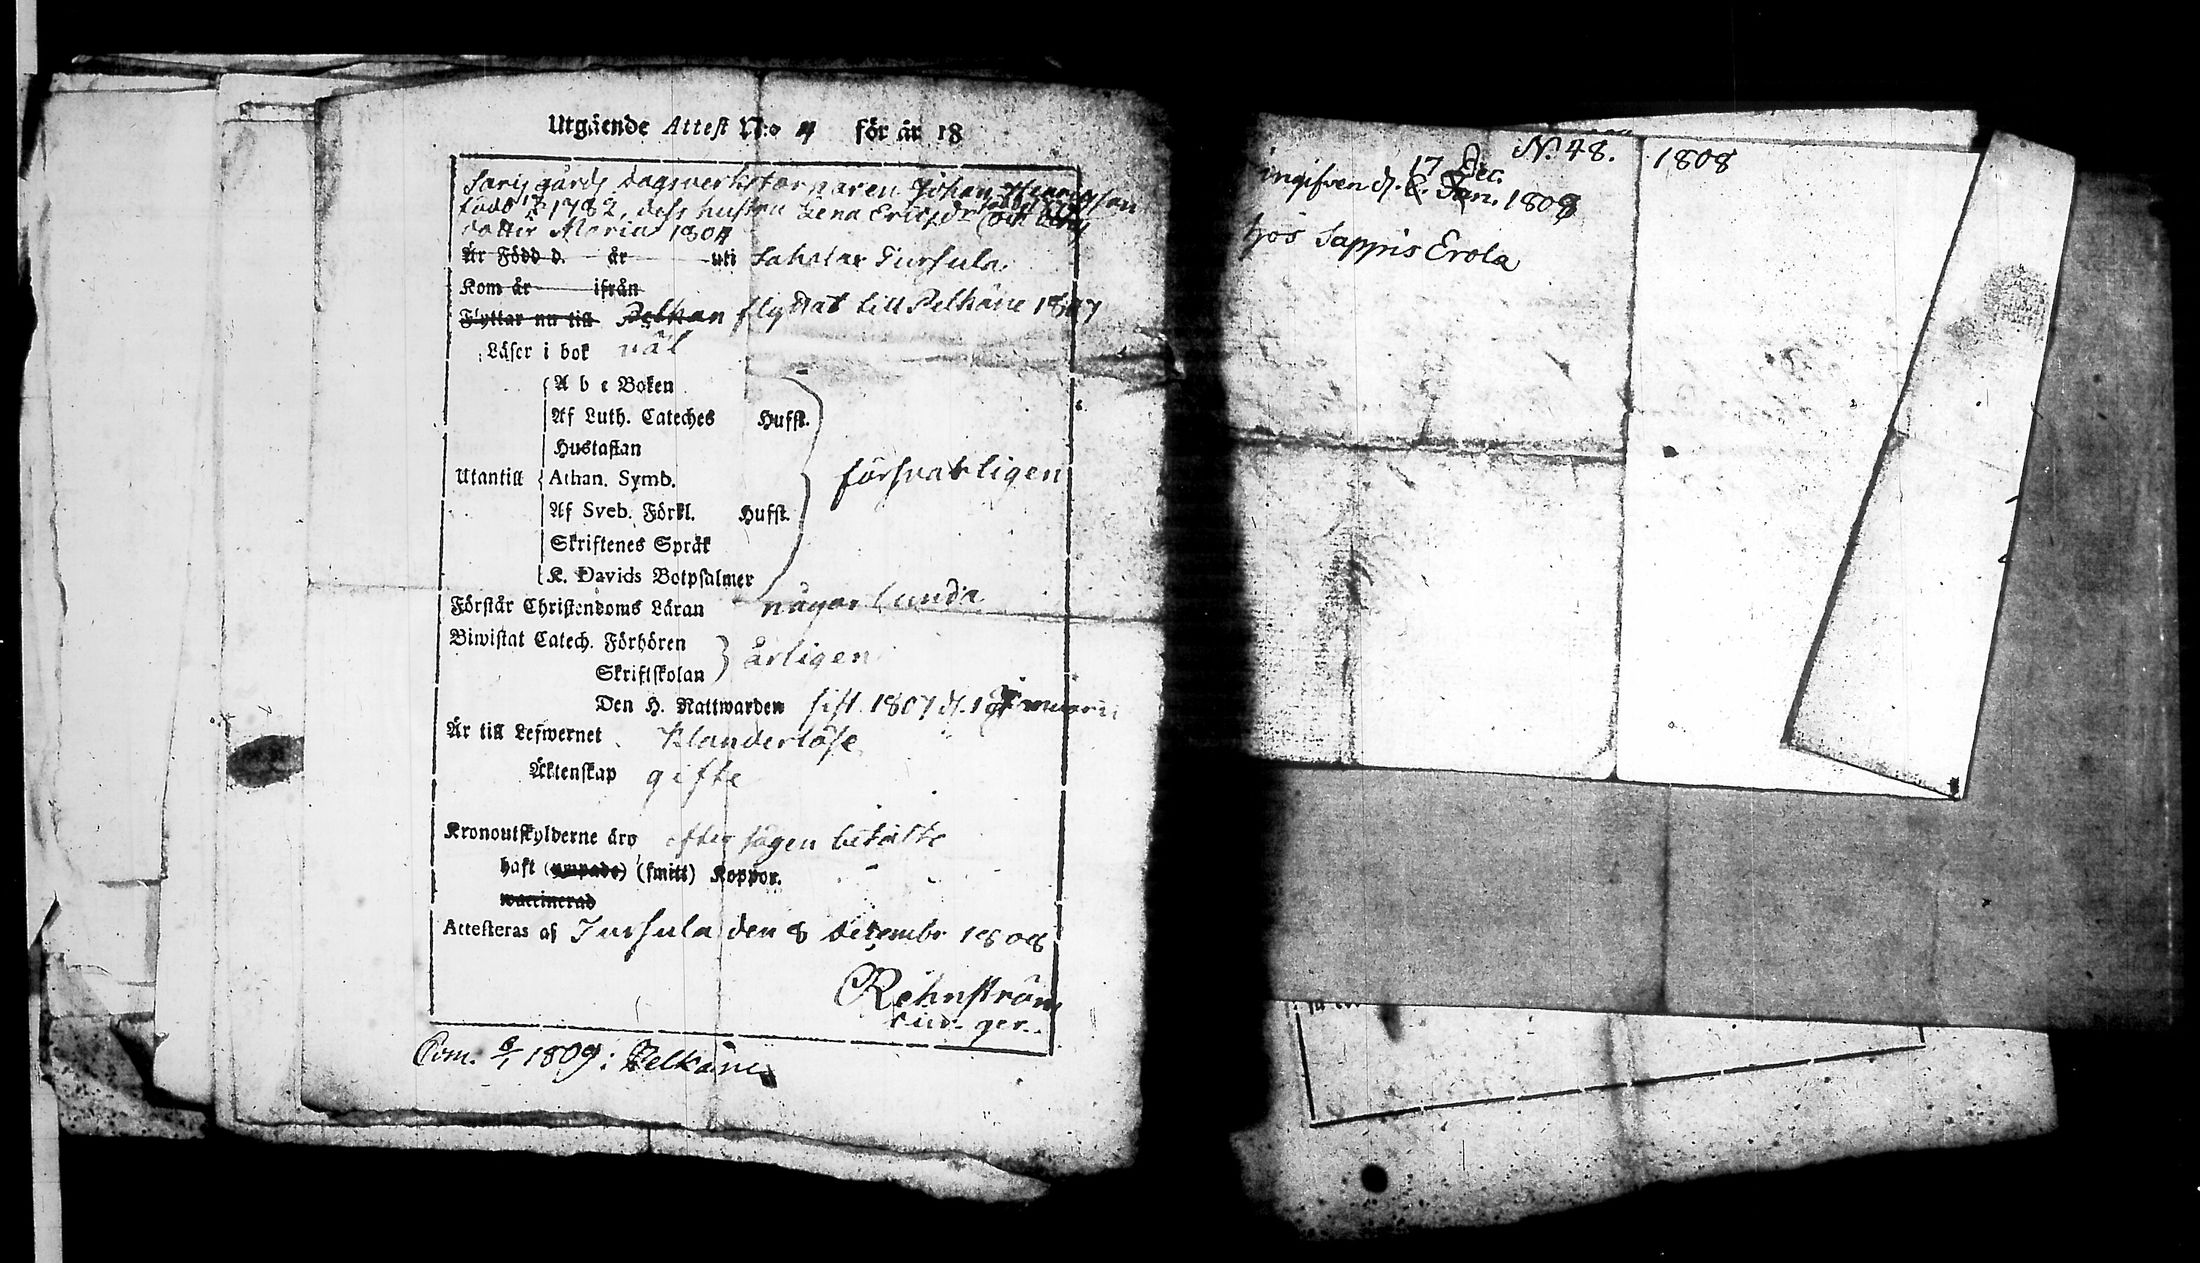 Utgående Attest N:o 4 för år 18
gårds Dagsverkskarlen Johan Henricsson
född 1782, dess hustru Lena Ericsdr
dotter Maria 1804
Är Född d. år uti Sahalax Tursula
Kom år ifrån
Flyttar nu till Pelkän flyttat till Pelkäne 1807
Läser i bok väl
A b c Boken
Af Luth. Cateches Hufst.
Hustaflan
Utantill Athan. Symb. försvarligen
Af Sveb. Förkl. Hufst.
Skriftenes Språk
K. Davids Botpsalmer
Förstår Christendoms Läran någorlunda
Biwistat Catech. Förhören
Skriftskolan årligen
Den H. Nattwarden sist 1807 d. Januarii
Är till Lefwernet Klanderlöse
Äktenskap gifte
Kronoutskylderne äro efter sägen betalte
haft (ympade) (smitt) Koppor.
waccinerad
Attesteras af Tursula den 8 December 1808
Rehnström
Com. 6/1 1809: Pelkäne
N. 48. 1808
17 Dec.
ingifven d. 8. Jan. 1808
hos Sappris Erola